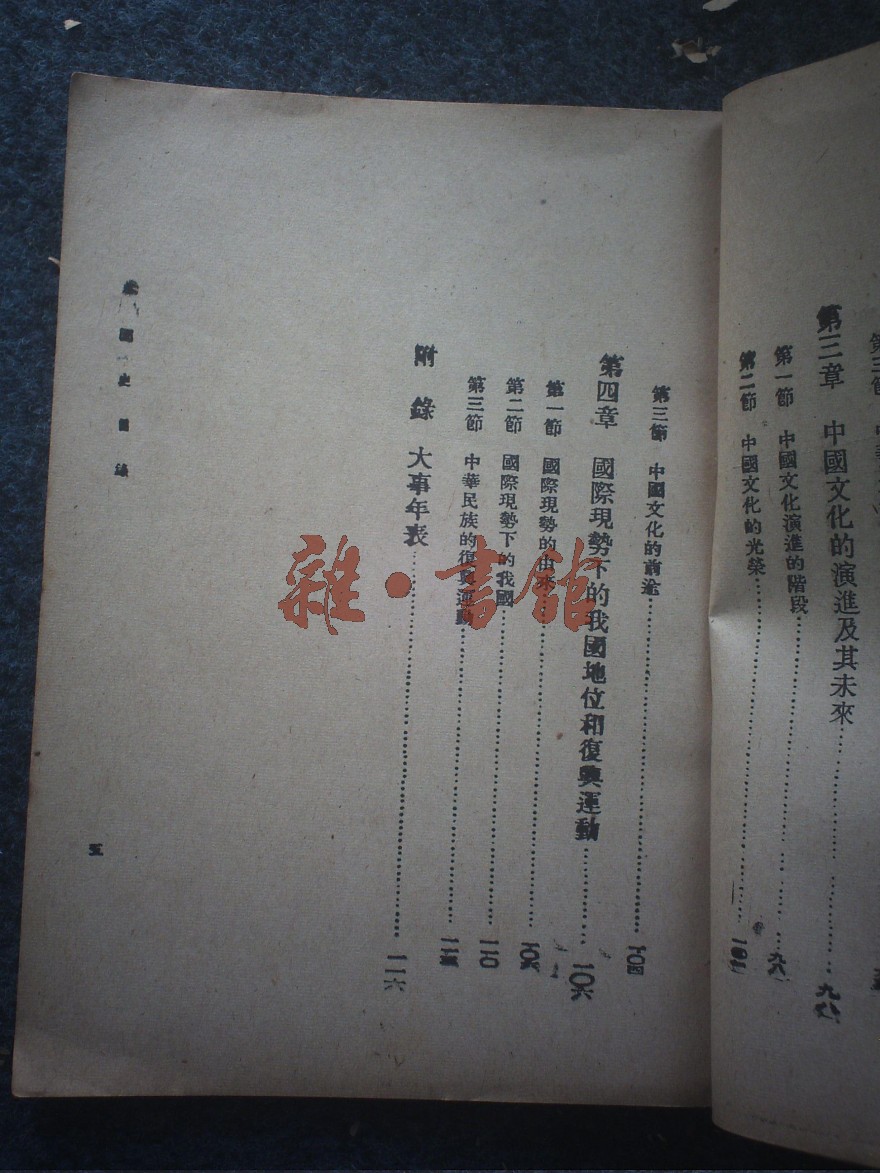 第三章 中國文化的演進及其未來 九八
第一節 中國文化演進的階段 九八
第二節 中國文化的光榮
第三節 中國文化的前途 一〇四
第四章 國際現勢下的我國地位和復興運動 一〇六
第一節 國際現勢的由來 一〇六
第二節 國際現勢下的我國 一一〇
第三節 中華民族的復興運動
附錄 大事年表 一一六
五
雜·書館